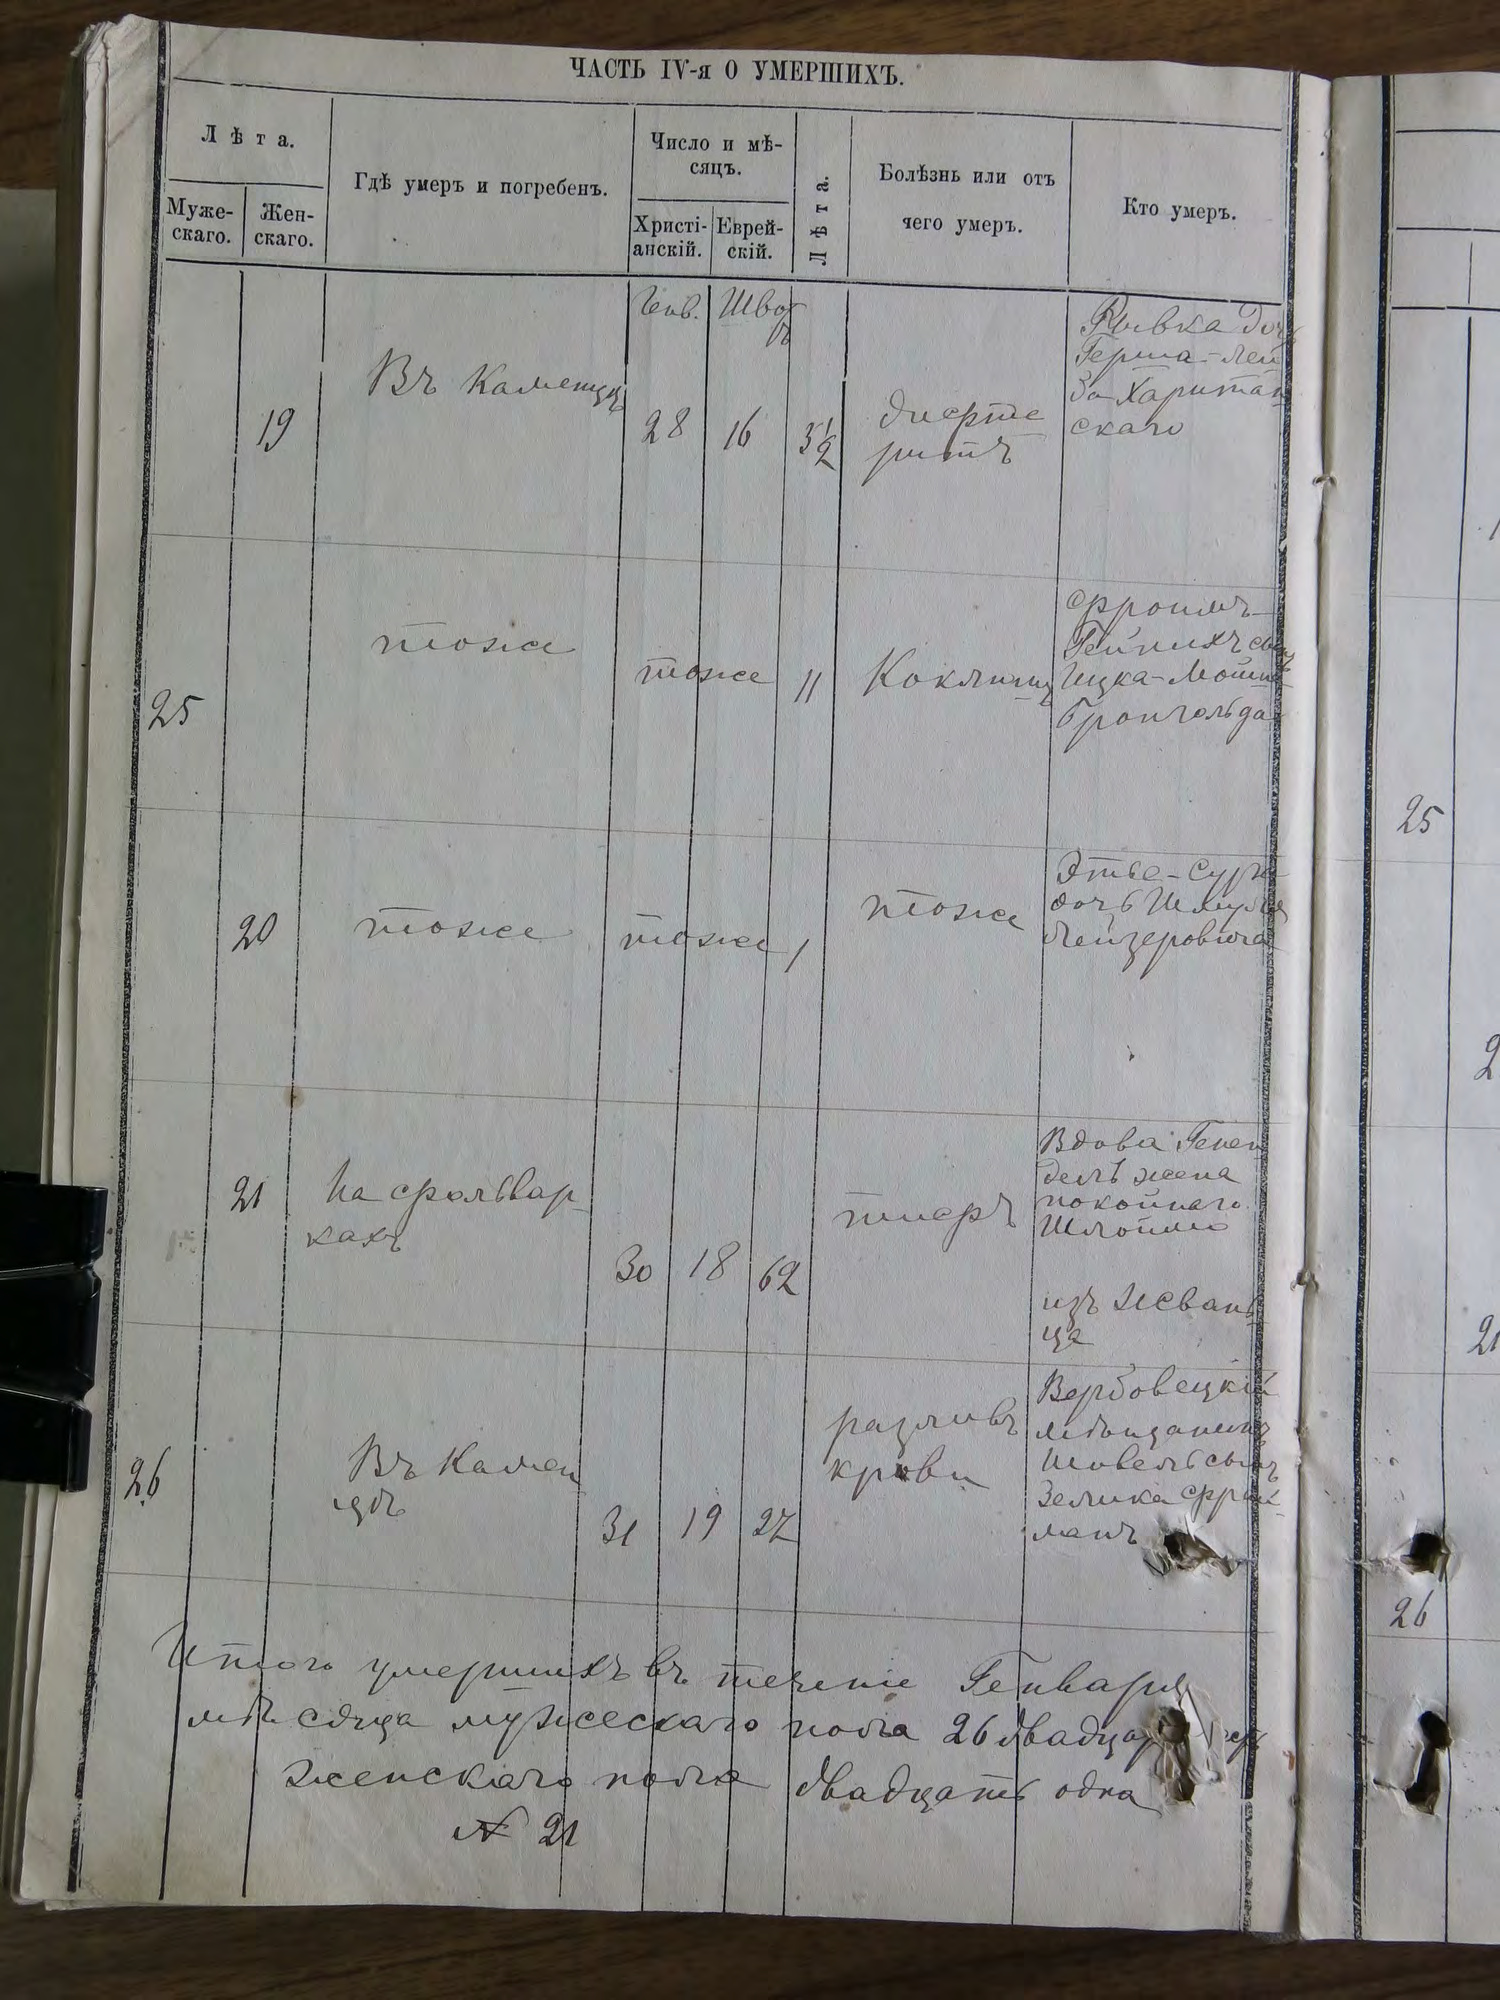 ЧАСТЬ IV-я О УМЕРШИХЪ.
Лѣта.
Муже-
скаго.
Жен-
скаго.
Гдѣ умеръ и погребенъ.
Число и мѣ-
сяцъ.
Христі-
анскій.
Еврей-
скій.
Лѣта.
Болѣзнь или отъ
чего умеръ.
Кто умеръ.
Генв. Шво
тъ
19
Въ Каменцѣ
28
16
3½
дифте
ритъ
Рывка доч
Герша-Лей
за-Харитан
скаго
25
тоже
тоже
11
Коклюшъ
Фроимъ-
Гейнихъ сынъ
Ицка-Мошка
Бронгольда
20
тоже
тоже
1
тоже
Этье-Сура
дочь Шмуля
Лейзеровича
21
На фольвар-
кахъ
30
18
62
тифъ
Вдова Генен
дель жена
покойнаго
Шлоймо
изъ Жван
ца
26
Въ Камен
цѣ
31
19
27
разливъ
крови
Вербовецкій
мѣщанинъ
Шовель сынъ
Зелика Фрой-
манъ
Итого умершихъ въ теченіе Генваря
мѣсяца мужескаго пола 26 двадца
женскаго пола двадцать одна
№ 21
25
2
21
26